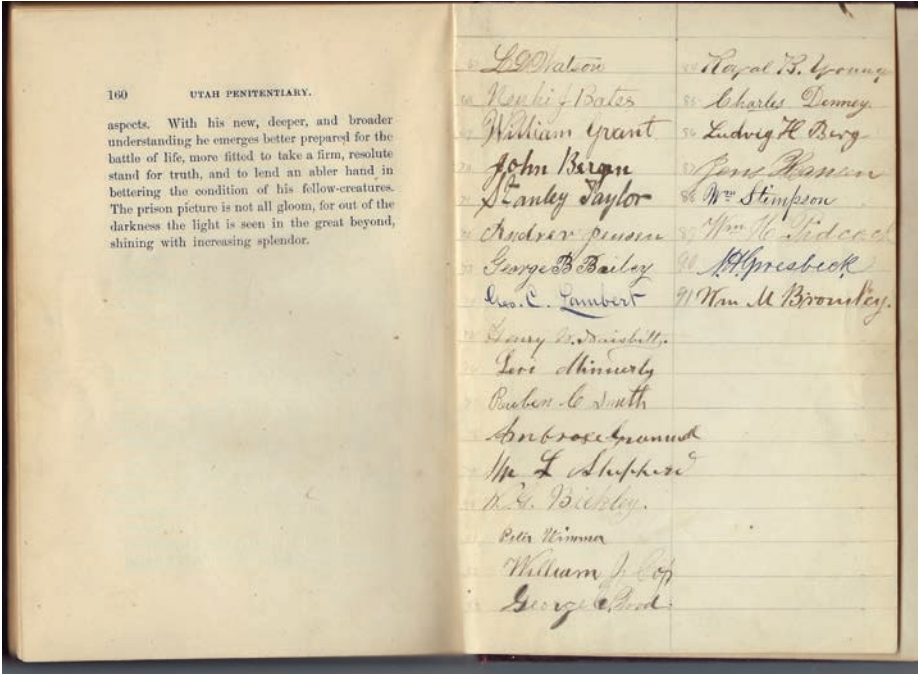 160 UTAH PENITENTIARY.
aspects. With his new, deeper, and broader
understanding he emerges better prepared for the
battle of life, more fitted to take a firm, resolute
stand for truth, and to lend an abler hand in
bettering the condition of his fellow-creatures.
The prison picture is not all gloom, for out of the
darkness the light is seen in the great beyond,
shining with increasing splendor.
L D Watson
Nephi J Bates
William Grant
John Bergen
Stanley Taylor
Andrew Jensen
George B Bailey
Geo. C. Lambert
Henry W. Naisbitt.
Levi Minnerly
Reuben C Smith
Ambrose
Wm L Shepherd
Bickley.
Peter Wimmer
William J. Cop
George C. Wood.
84 Royal B. Young
85 Charles Denney.
86 Ludvig H Berg
87 Jens Hansen
88 Wm Stimpson
89 Wm H Pidcock
90 N.H. Groesbeck.
91 Wm M Bromley.